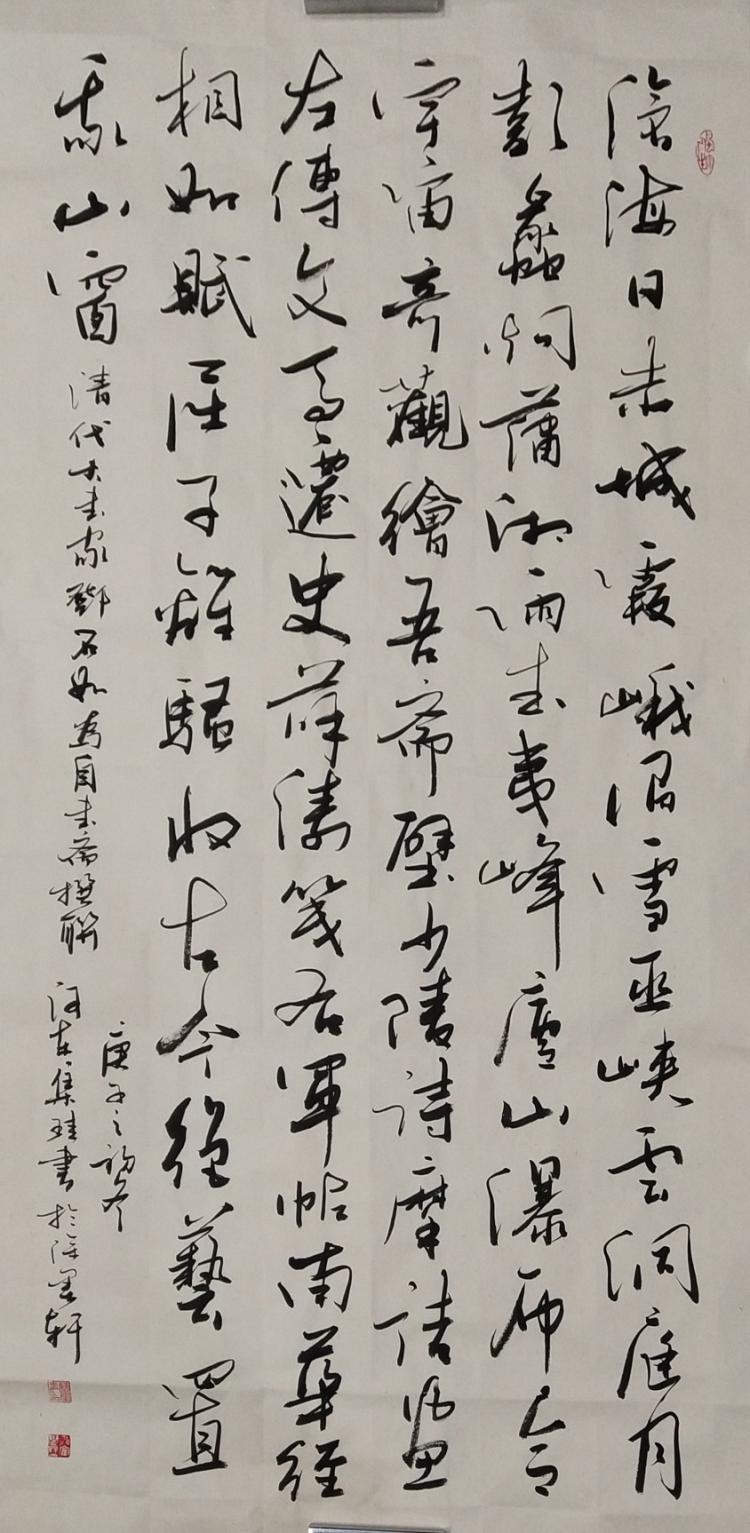 滄海日赤城霞峨眉雪巫峽雲洞庭月
彭蠡烟瀟湘雨武夷峰廬山瀑布合
宇宙奇觀繪吾齋壁少陵詩摩詰畫
左傳文馬遷史薛濤箋右軍帖南華經
相如賦屈子離騷收古今絕藝置
我山窗
清代大书家鄧石如为自书齋撰聯
庚子之初冬
集 書於 墨軒